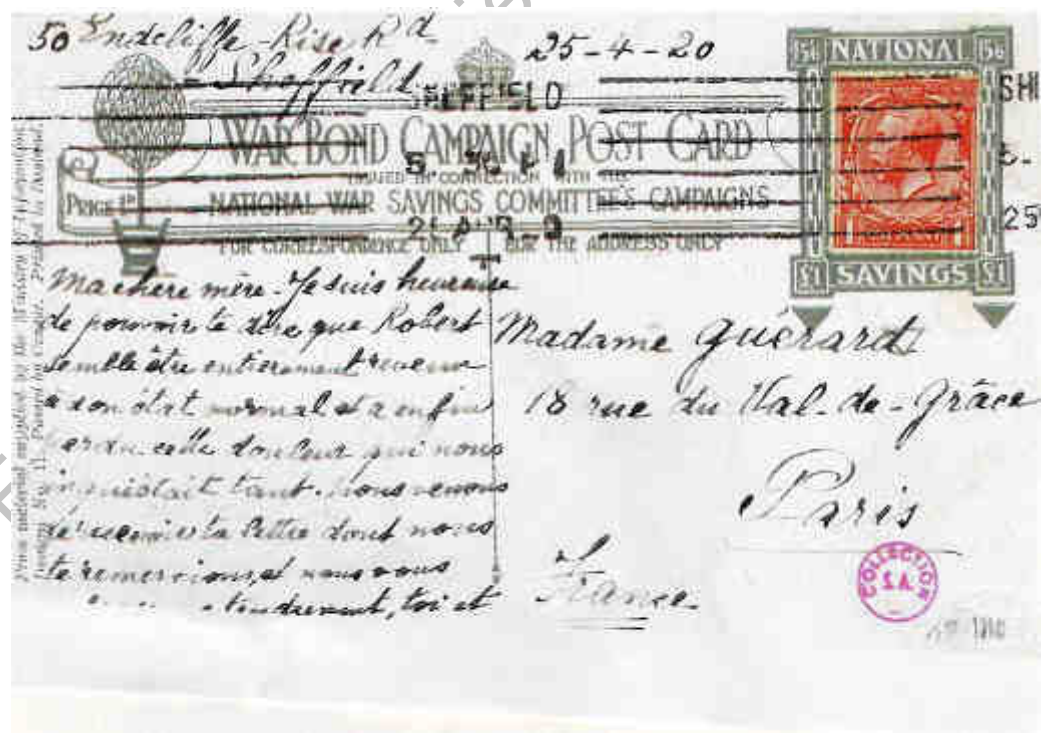 50 Endcliffe Rise Rd
Sheffield
25-4-20
SHEFFIELD
NATIONAL
15/6 15/6
WAR BOND CAMPAIGN POST CARD
ISSUED IN CONNECTION WITH THE
NATIONAL WAR SAVINGS COMMITTEE'S CAMPAIGNS
PRICE 1D
FOR CORRESPONDENCE ONLY
FOR THE ADDRESS ONLY
£1 SAVINGS £1
Ma chère mère - Je suis heureuse
de pouvoir te dire que Robert
semble être entièrement revenu
à son état normal et a enfin
perdu cette douleur qui nous
inquiétait tant. Nous venons
de recevoir ta lettre dont nous
te remercions, et nous vous
tendrement, toi et
Madame Guérard
18 rue du Val-de-Grâce
Paris
France
COLLECTION
S.A.